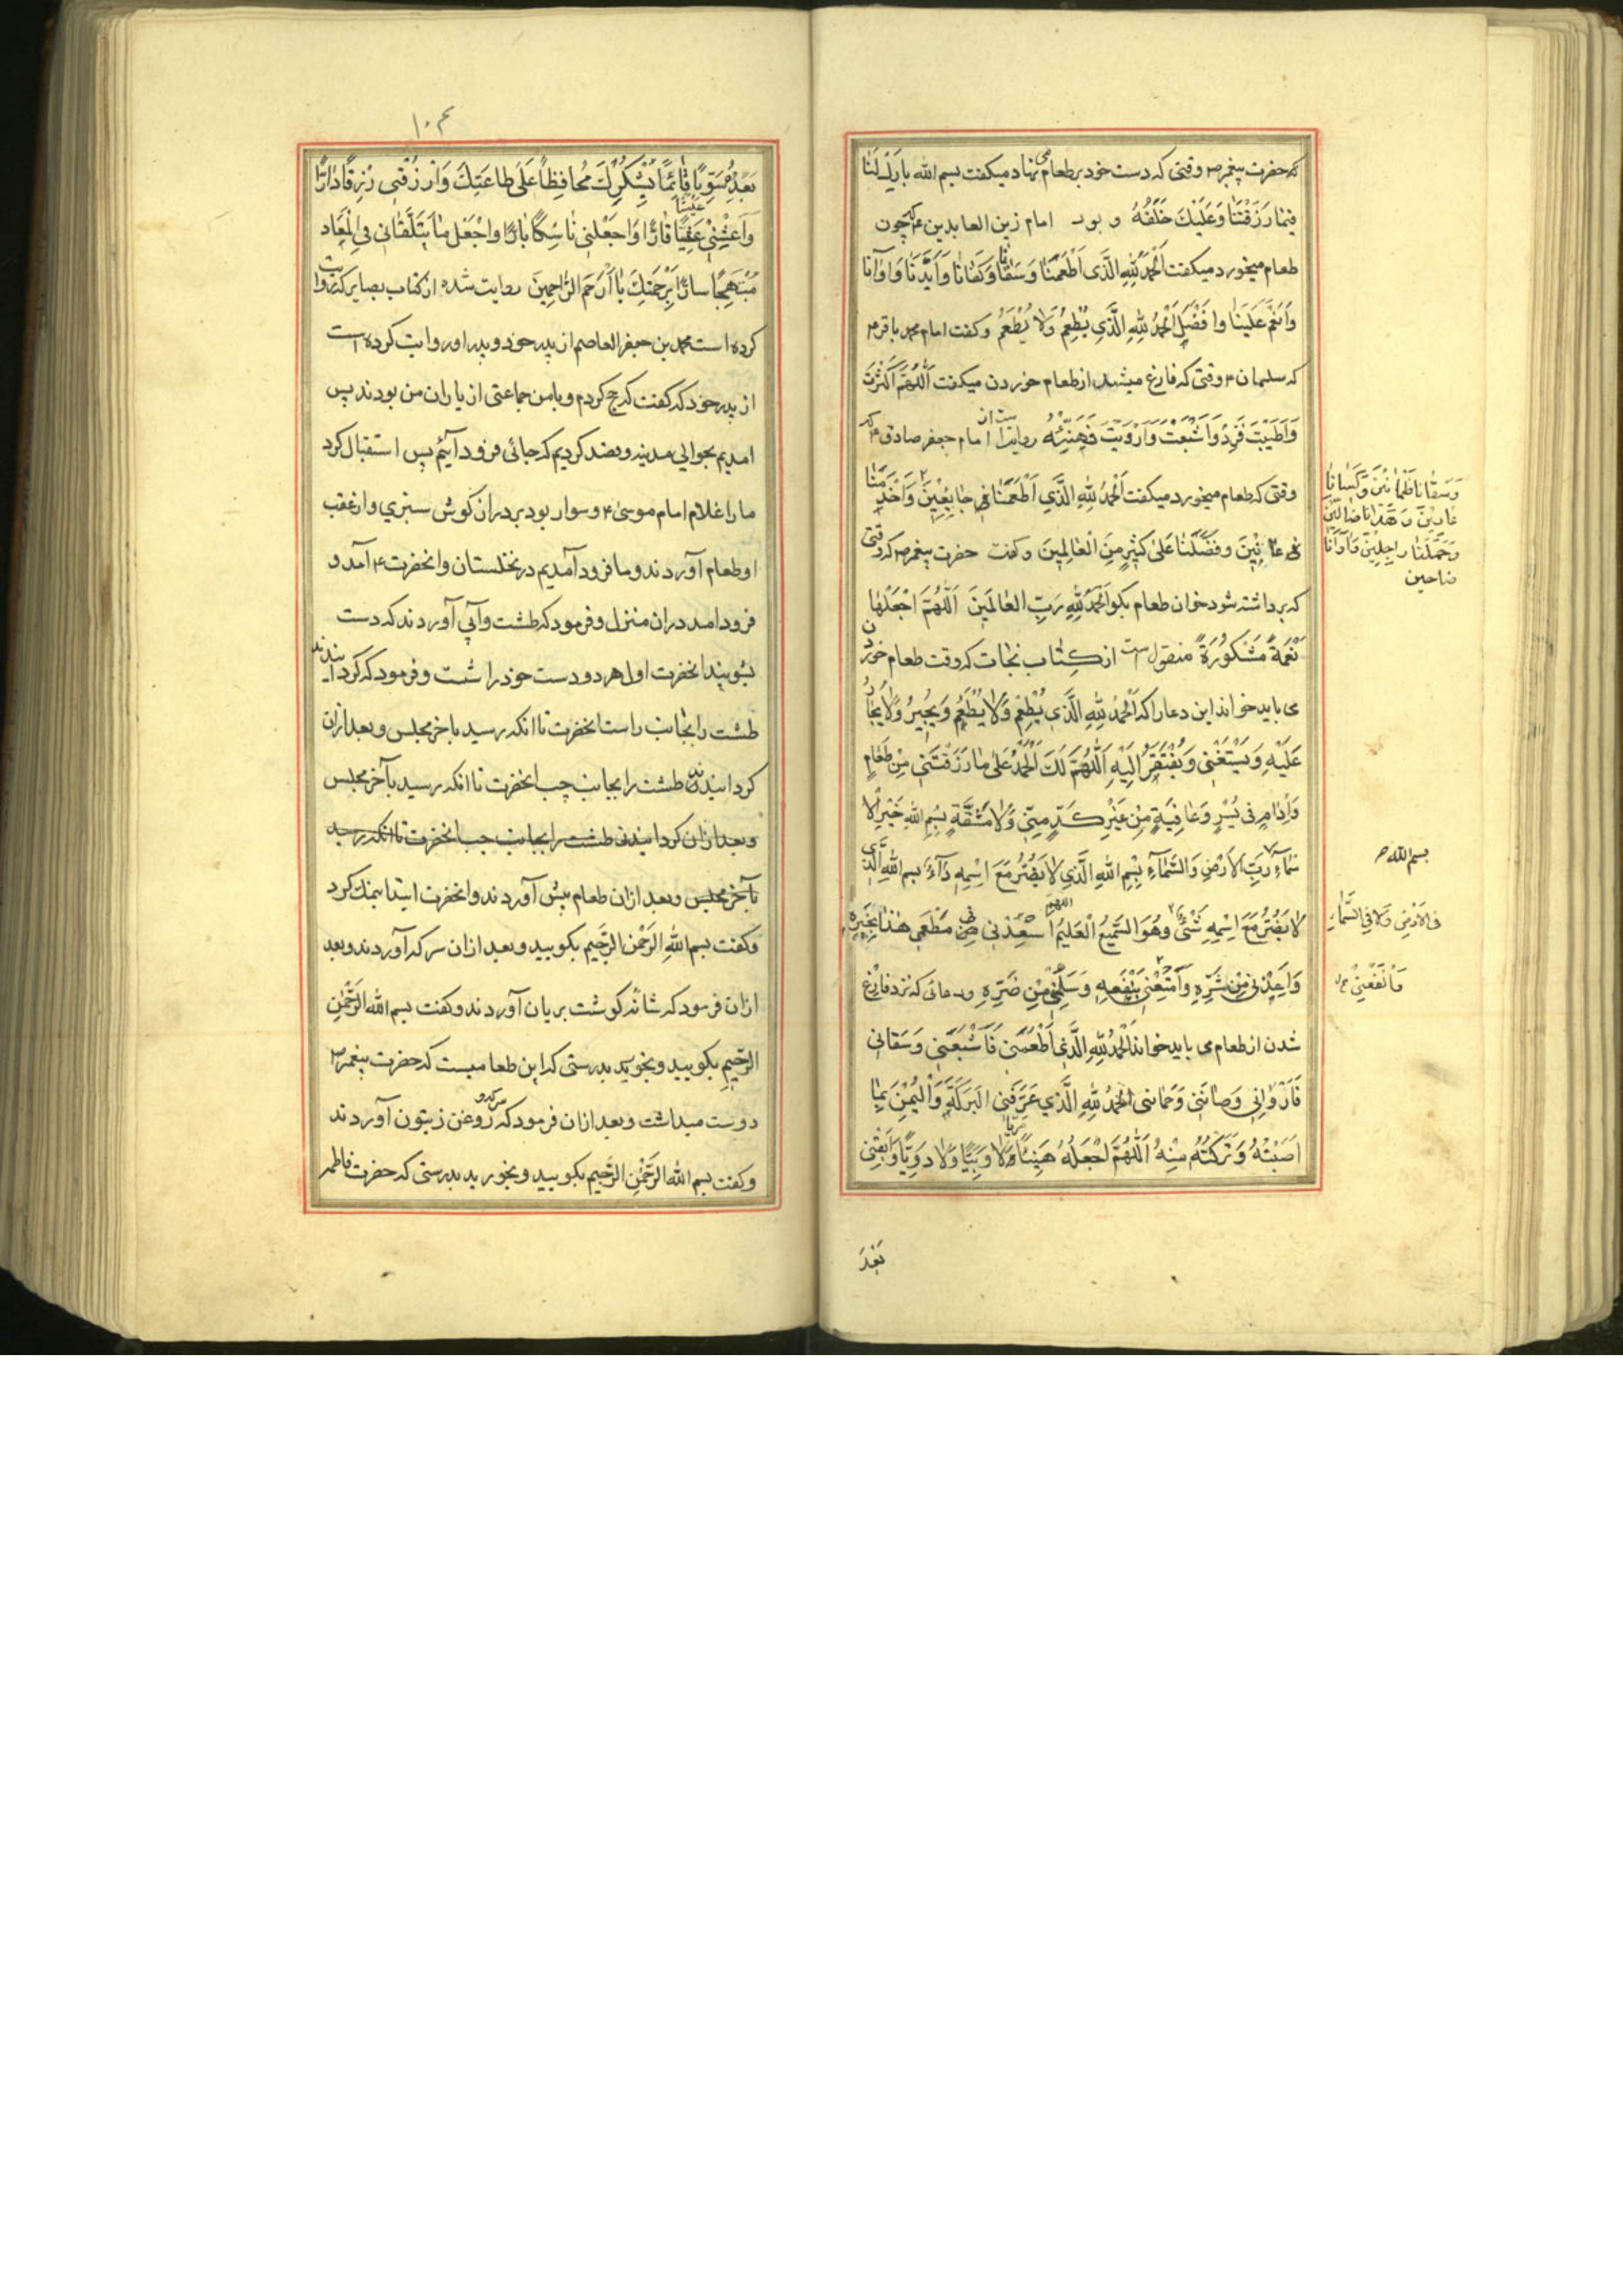 که حضرت پیغمبر ص وقتی که دست خود بر طعام می نهاد میکفت بسم الله بارک لنا
فیما رزقتنا وعلیک خلفه و بود امام زین العابدین ع که چون
طعام میخورد میکفت الحمد لله الذی اطعمنا وسقانا وکفانا وایدنا واوانا
وانعم علینا وافضل الحمد لله الذی یطعم ولا یطعم وکفت امام محمد باقر ع
که سلیمان ع وقتی که فارغ میشد از طعام خوردن میکفت اللهم اکثرت
واطیبت فزد واشبعت وارویت فهنئه روایت از امام جعفر صادق ع که
وقتی که طعام میخورد میکفت الحمد لله الذی اطعمنا فی جایعین واخدمنا
فی عانین وفضلنا علی کثیر من العالمین وکفت حضرت پیغمبر ص که وقتی
که برداشته شود خوان طعام بکو الحمد لله رب العالمین اللهم اجعلها
نعمة مشکورة منقول است از کتاب نجات که وقت طعام خوردن
می باید خواند این دعا را که الحمد لله الذی یطعم ولا یطعم ویجیر ولا یجار
علیه ویستغنی ویفتقر الیه اللهم لک الحمد علی ما رزقتنی من طعام
وادام فی یسر وعافیة من غیر کد منی ولا مشقة بسم الله خیر الا
سماء رب الارض والسماء بسم الله الذی لا یضر مع اسمه داء بسم الله الذی
لا یضر مع اسمه شئ وهو السمیع العلیم اللهم اسعدنی فی مطعمی هذا بخیره
واعذنی من شره وامتعنی بنفعه وسلمنی من ضره ودعائی که نزد فارغ
شدن از طعام می باید خواند الحمد لله الذی اطعمنی فاشبعنی وسقانی
فاروانی وصاننی وحمانی الحمد لله الذی عرفنی البرکة والیمن بما
اصبته وترکته منه اللهم اجعله هنیئا مریا لا وبیا ولا دویا وابقنی
بعد
وسقانا فی ظمانین وکسانا فی
عارین وهدانا فی ضالین
وحملنا فی راجلین وآوانا فی
ضاحین
بسم الله ص
فی الارض ولا فی السماء
وانفعنی
۱۰۴
بعده سویا قائما بشکرک محافظا علی طاعتک وارزقنی رزقا دارا
واعشنی عیشا قارا واجعلنی ناسکا بارا واجعل ما یتلقانی فی المعاد
مبتهجا سارا برحمتک یا ارحم الراحمین روایت شده از کتاب بصایر که روایت
کرده است محمد بن جعفر العاصم از پدر خود و پدر او روایت کرده است
از پدر خود که کفت که حج کردم و با من جماعتی از یاران من بودند پس
امدیم بحوالی مدینه و قصد کردیم که جائی فرود آئیم پس استقبال کرد
ما را غلام امام موسی ع و سوار بود بر درازکوش سبزی و از عقب
او طعام آوردند و ما فرود آمدیم در نخلستان و انحضرت ع آمد و
فرود امد در ان منزل و فرمود که طشت و آبی آوردند که دست
بشویند انحضرت اول هر دو دست خود را شست و فرمود که کردانیدند
طشت را بجانب راست انحضرت تا انکه رسید باخر مجلس و بعد ازان
کردانیدند طشت را بجانب چپ انحضرت تا انکه رسید بآخر مجلس
وبعد ازان کردانیدند طشت را بجانب چپ انحضرت تا انکه رسید
بآخر مجلس وبعد ازان طعام پیش آوردند وانحضرت ابتدا بنمک کرد
وکفت بسم الله الرحمن الرحیم بکویید وبعد ازان سرکه آوردند وبعد
ازان فرمود که شانه کوشت بریان آوردند وکفت بسم الله الرحمن
الرحیم بکویید وبخورید بدرستی که این طعامیست که حضرت پیغمبر ص
دوست میداشت وبعد ازان فرمود که سرکه و روغن زیتون آوردند
وکفت بسم الله الرحمن الرحیم بکویید وبخورید بدرستی که حضرت فاطمه